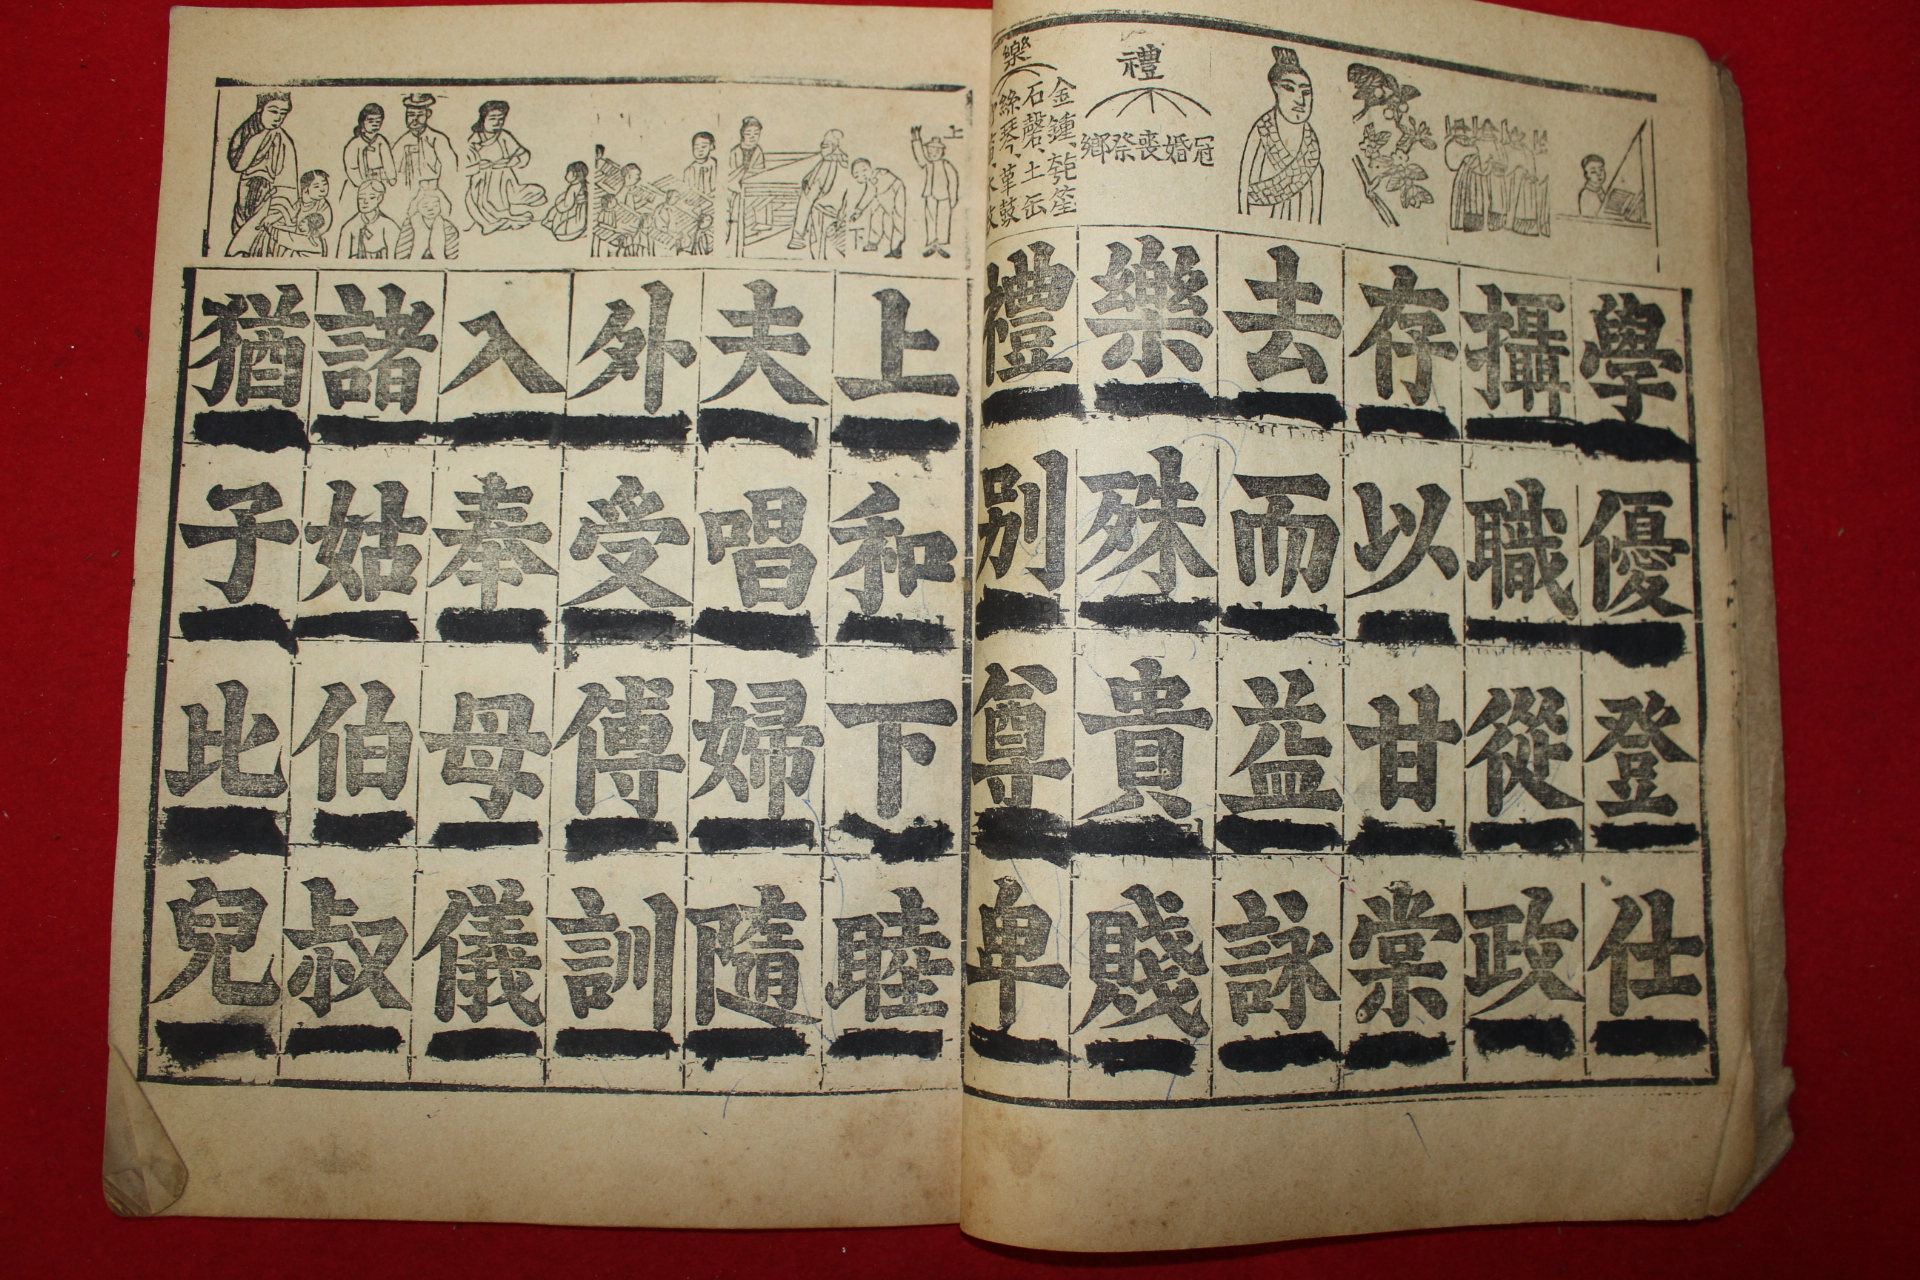 禮
冠婚喪祭鄉
樂
金鍾、匏笙
石磬、土缶
絲琴、革鼓
學優登仕
攝職從政
存以甘棠
去而益詠
樂殊貴賤
禮別尊卑
上
下
上和下睦
夫唱婦隨
外受傅訓
入奉母儀
諸姑伯叔
猶子比兒